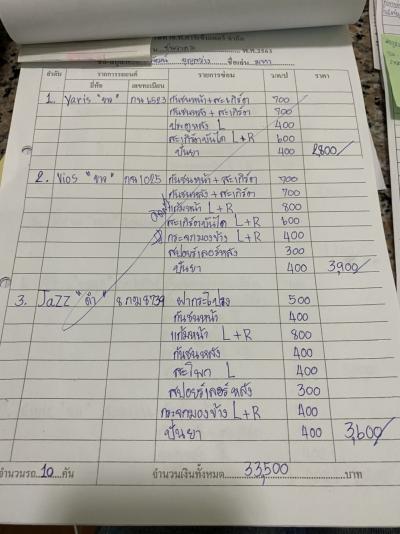 พ.ศ.2563
ลำดับ รายการรถยนต์ รายการซ่อม ว/ด/ป ราคา
ยี่ห้อ เลขทะเบียน
1. Yaris "ขาว" กันชนหน้า+สะเกิร์ตา 700
กันชนหลัง + สะเกิร์ตา 700
ประตูหลัง L 400
สะเกิร์ตบันได L+R 600
ปั้นยา 400 2800/
2. Vios "ขาว" 1025 กันชนหน้า + สะเกิร์ตา 700
กันชนหลัง + สะเกิร์ตา 700
แก้มหน้า L+R 800
สะเกิร์ตบันได L+R 600
กระจกมองข้าง L+R 400
สปอยร์เลอร์หลัง 300
ปั้นยา 400 3,900/
3. Jazz "ดำ" 8739 ฝากระโปรง 500
กันชนหน้า 400
แก้มหน้า L+R 800
กันชนหลัง 400
สะโพก L 400
สปอยร์เลอร์หลัง 300
กระจกมองข้าง L+R 400
ปั้นยา 400 3,600/
จำนวนรถ 10 คัน จำนวนเงินทั้งหมด 33,500 บาท